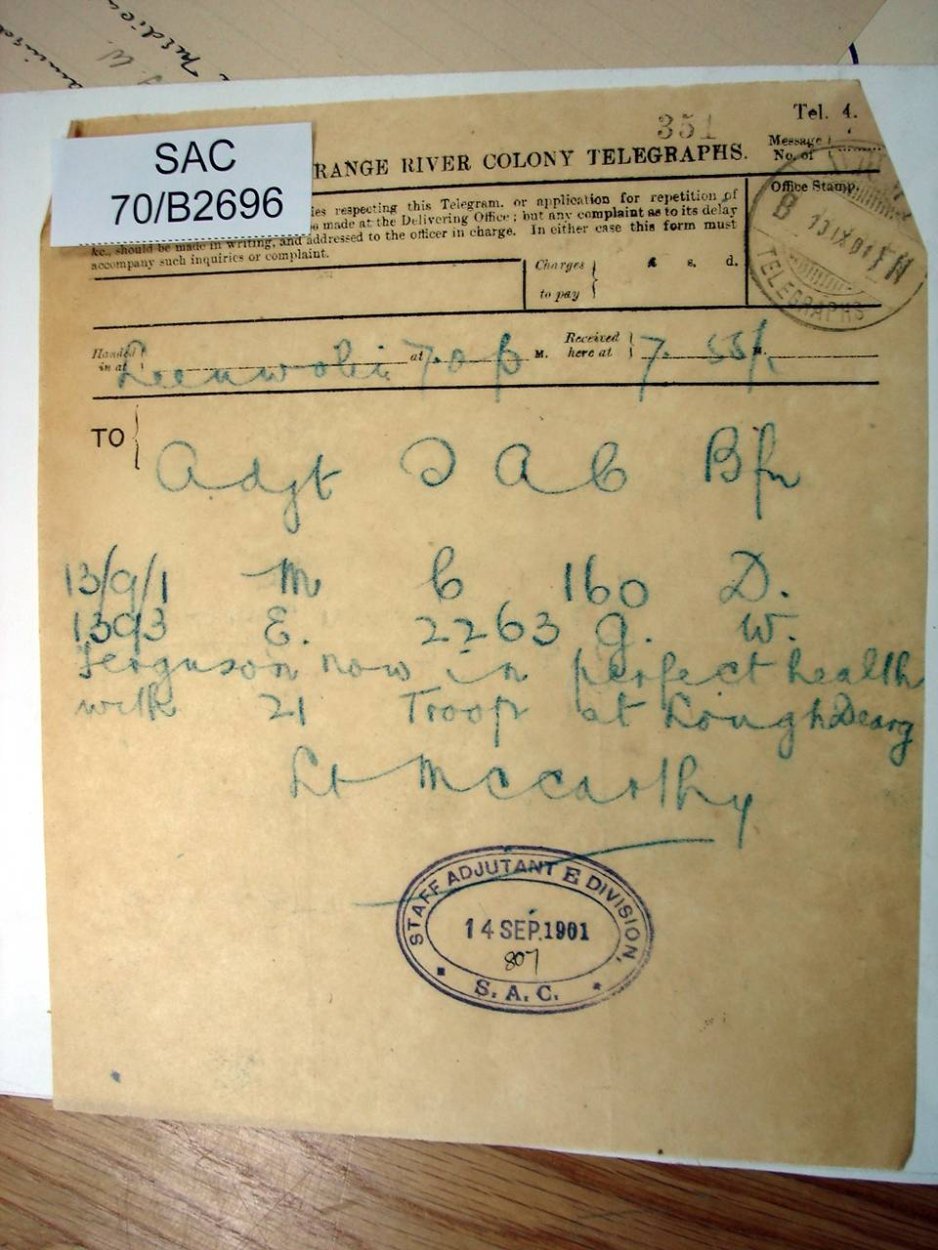 SAC
70/B2696
351
Tel. 4.
RANGE RIVER COLONY TELEGRAPHS.
Message
No. of
ies respecting this Telegram. or application for repetition of
made at the Delivering Office; but any complaint as to its delay
&c., should be made in writing, and addressed to the officer in charge. In either case this form must
accompany such inquiries or complaint.
Office Stamp.
B 13 IX 01 FN
TELEGRAPHS
Charges
to pay
s. d.
Handed
in at
at 7.0 p M.
Received
here at
7. 55 p
TO
Adgt S A C Bfn
13/9/1 M C 160 D.
1393 E. 2263 G. W.
Ferguson now in perfect health
with 21 Troop at Lough Dearg
Lt McCarthy
STAFF ADJUTANT E DIVISION,
14 SEP. 1901
807
S. A. C.